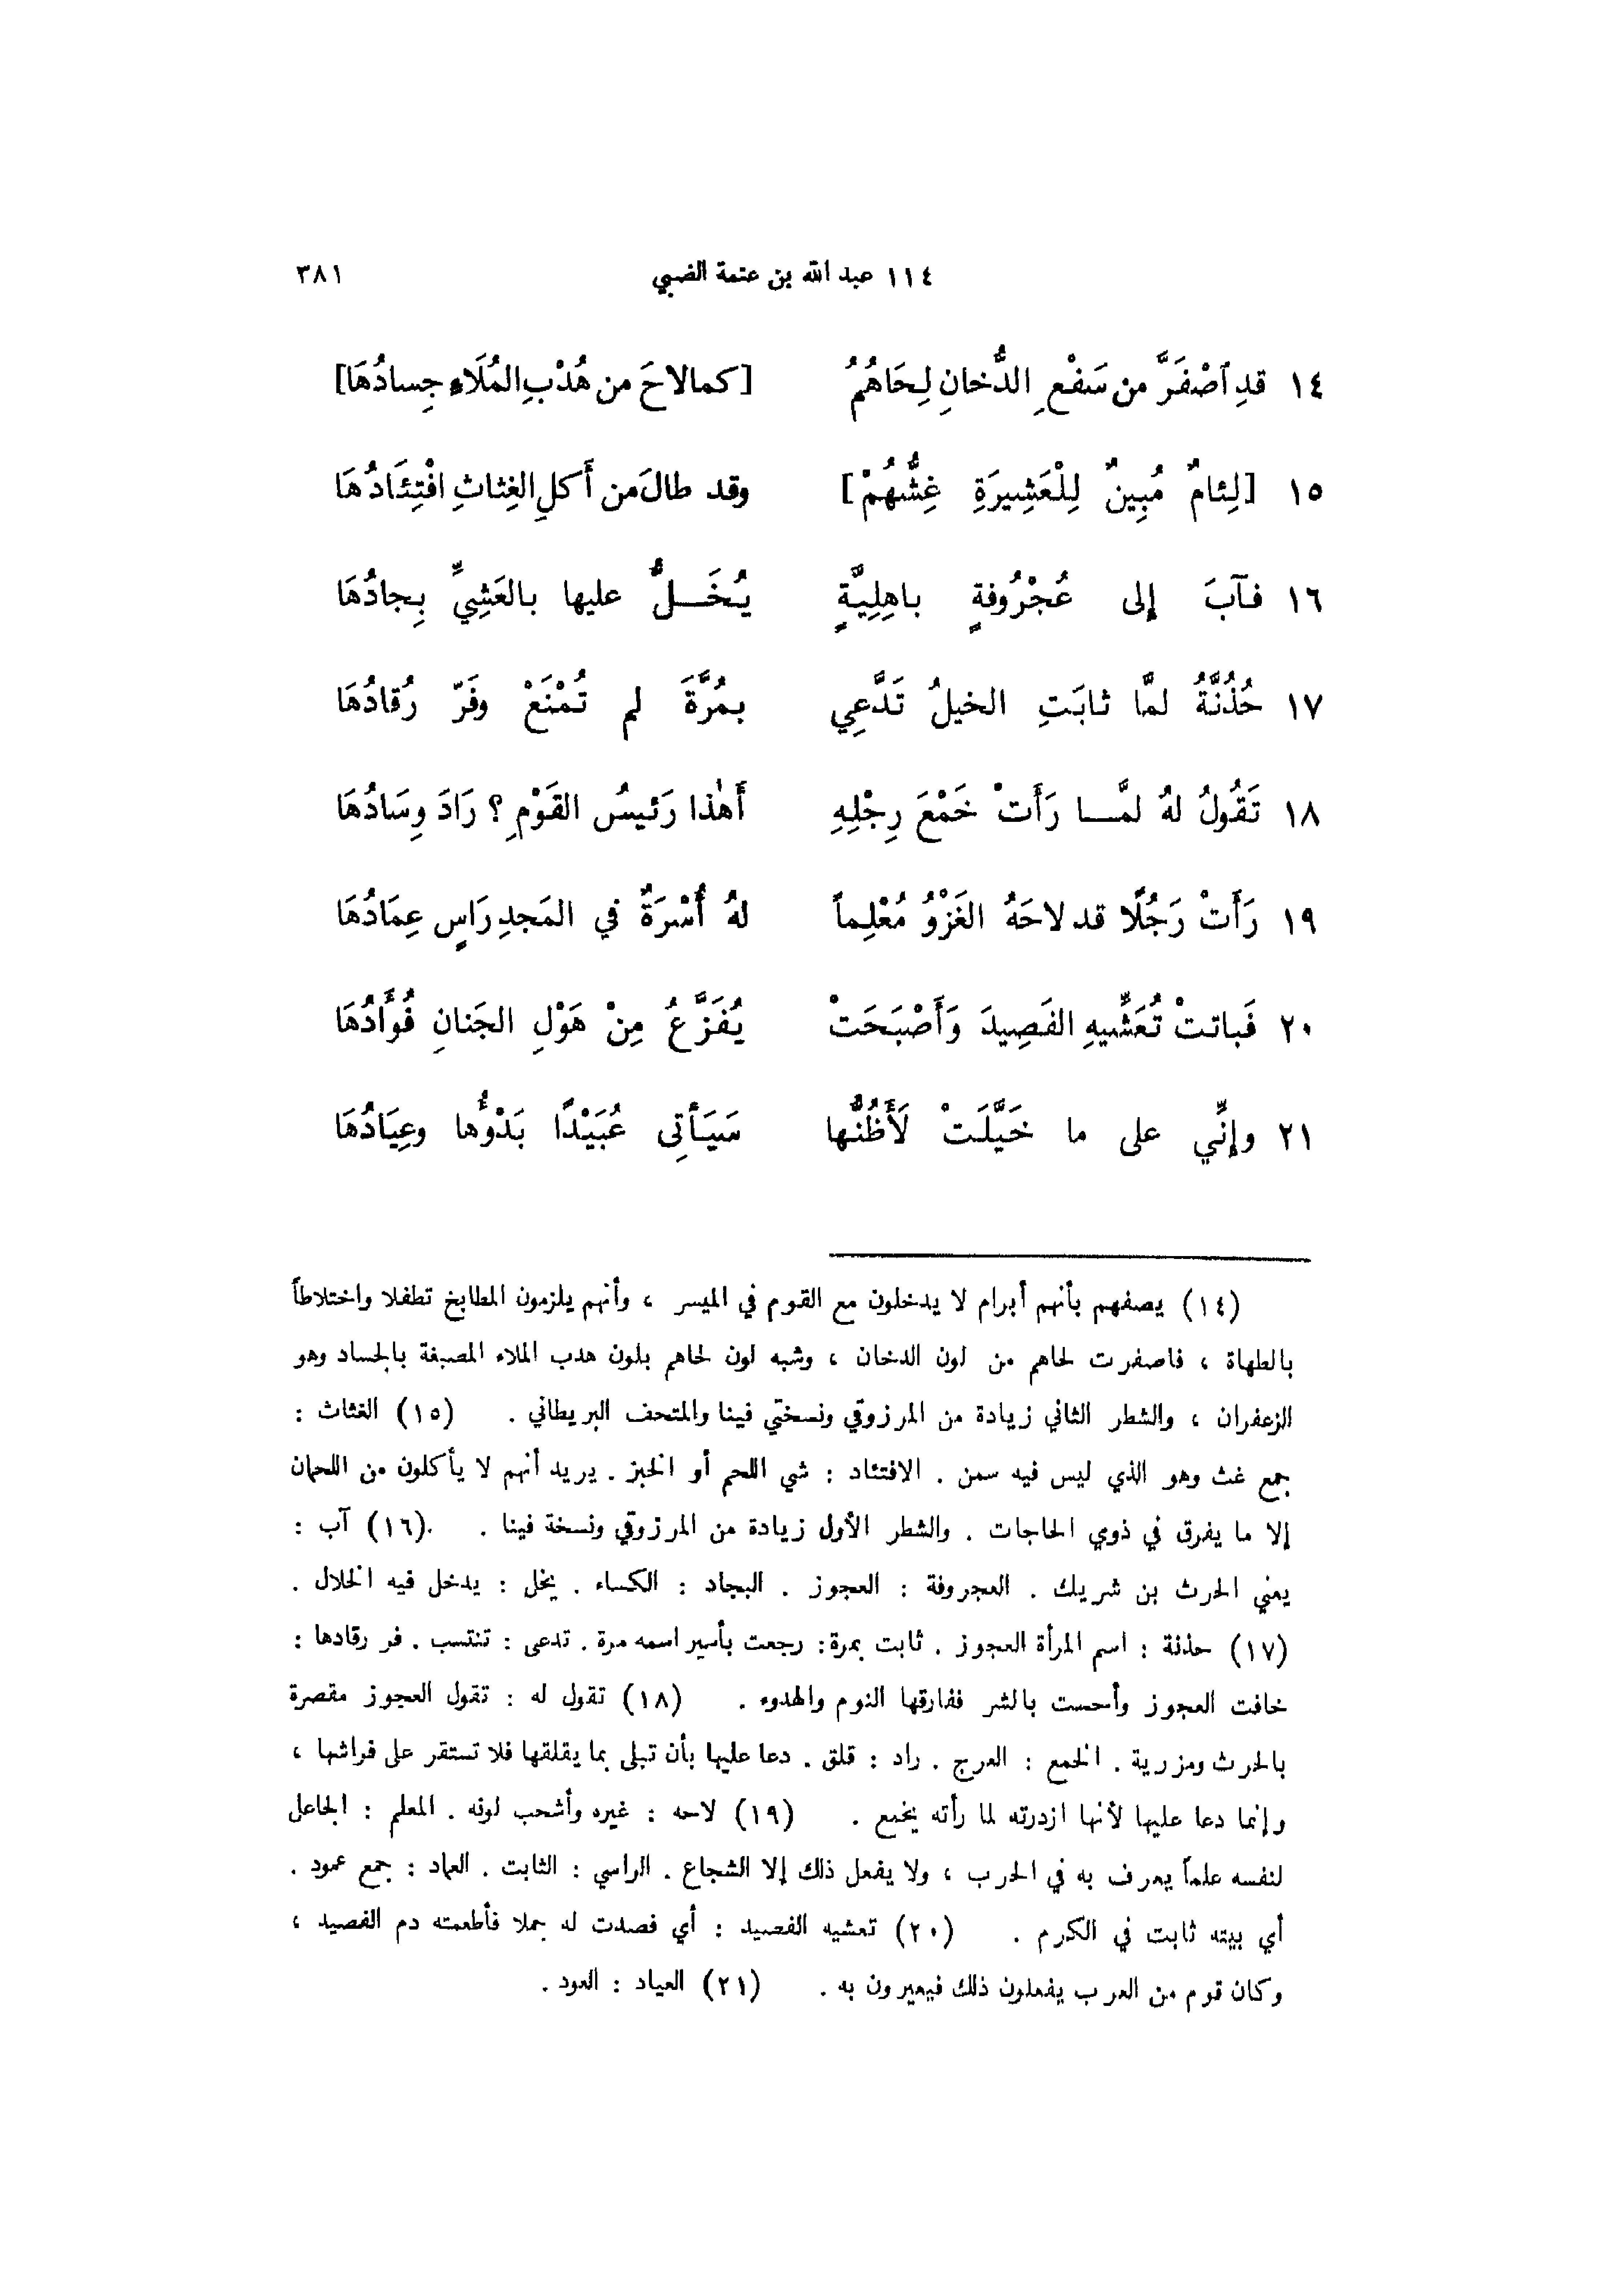 ١١٤ عبد الله بن عنمة الضبي ٣٨١
١٤ قدِ ٱصْفَرَّ من سَفْعِ الدُّخانِ لِحَاهُمُ [كمالاحَ من هُدْبِ المُلَاءِ جِسادُهَا]
١٥ [لِئامٌ مُبِينٌ لِلْعَشِيرَةِ غِشُّهُمْ] وقد طالَ من أَكلِ الغِثاثِ افْتِئَادُهَا
١٦ فآبَ إلى عُجْرُوفةٍ باهِلِيَّةٍ يُخَلُّ عليها بالعَشِيِّ بِجادُهَا
١٧ حُذُنَّةُ لمَّا ثابَتِ الخيلُ تَدَّعِي بمُرَّةَ لم تُمْنَعْ وفَرّ رُقادُهَا
١٨ تَقُولُ لهُ لمَّا رَأَتْ خَمْعَ رِجْلِهِ أَهٰذا رَئيسُ القَوْمِ ؟ رَادَ وِسَادُهَا
١٩ رَأَتْ رَجُلًا قد لاحَهُ الغَزْوُ مُعْلِماً لهُ أُسْرَةٌ في المَجدِ رَاسٍ عِمَادُهَا
٢٠ فَباتتْ تُعَشِّيهِ الفَصِيدَ وَأَصْبَحَتْ يُفَزَّعُ مِنْ هَوْلِ الجَنانِ فُوَّادُهَا
٢١ وإِنِّي على ما خَيَّلَتْ لَأَظُنُّها سَيَأتِى عُبَيْدًا بَدْوُها وعِيَادُهَا
(١٤) يصفهم بأنهم أبرام لا يدخلون مع القوم في الميسر ، وأنهم يلزمون المطابخ تطفلا واختلاطاً
بالطهاة ، فاصفرت لحاهم من لون الدخان ، وشبه لون لحاهم بلون هدب الملاء المصبغة بالجساد وهو
الزعفران ، والشطر الثاني زيادة من المرزوقي ونسختي فينا والمتحف البريطاني . (١٥) الغثاث :
جمع غث وهو الذي ليس فيه سمن . الافتئاد : شي اللحم أو الخبز . يريد أنهم لا يأكلون من اللحمان
إلا ما يفرق في ذوي الحاجات . والشطر الأول زيادة من المرزوقي ونسخة فينا . (١٦) آب :
يعني الحرث بن شريك . العجروفة : العجوز . البجاد : الكساء . يخل : يدخل فيه الخلال .
(١٧) حذنة : اسم المرأة العجوز . ثابت بمرة : رجعت بأسير اسمه مرة . تدعى : تنتسب . فر رقادها :
خافت العجوز وأحست بالشر ففارقها النوم والهدوء . (١٨) تقول له : تقول العجوز مقصرة
بالحرث ومزرية . الخمع : العرج . راد : قلق . دعا عليها بأن تبلى بما يقلقها فلا تستقر على فراشها ،
وإنما دعا عليها لأنها ازدرته لما رأته يخمع . (١٩) لاحه : غيره وأشحب لونه . المعلم : الجاعل
لنفسه علماً يعرف به في الحرب ، ولا يفعل ذلك إلا الشجاع . الراسي : الثابت . العماد : جمع عمود .
أي بيته ثابت في الكرم . (٢٠) تعشيه الفصيد : أي فصدت له جملا فأطعمته دم الفصيد ،
وكان قوم من العرب يفعلون ذلك فيعيرون به . (٢١) العياد : العود .